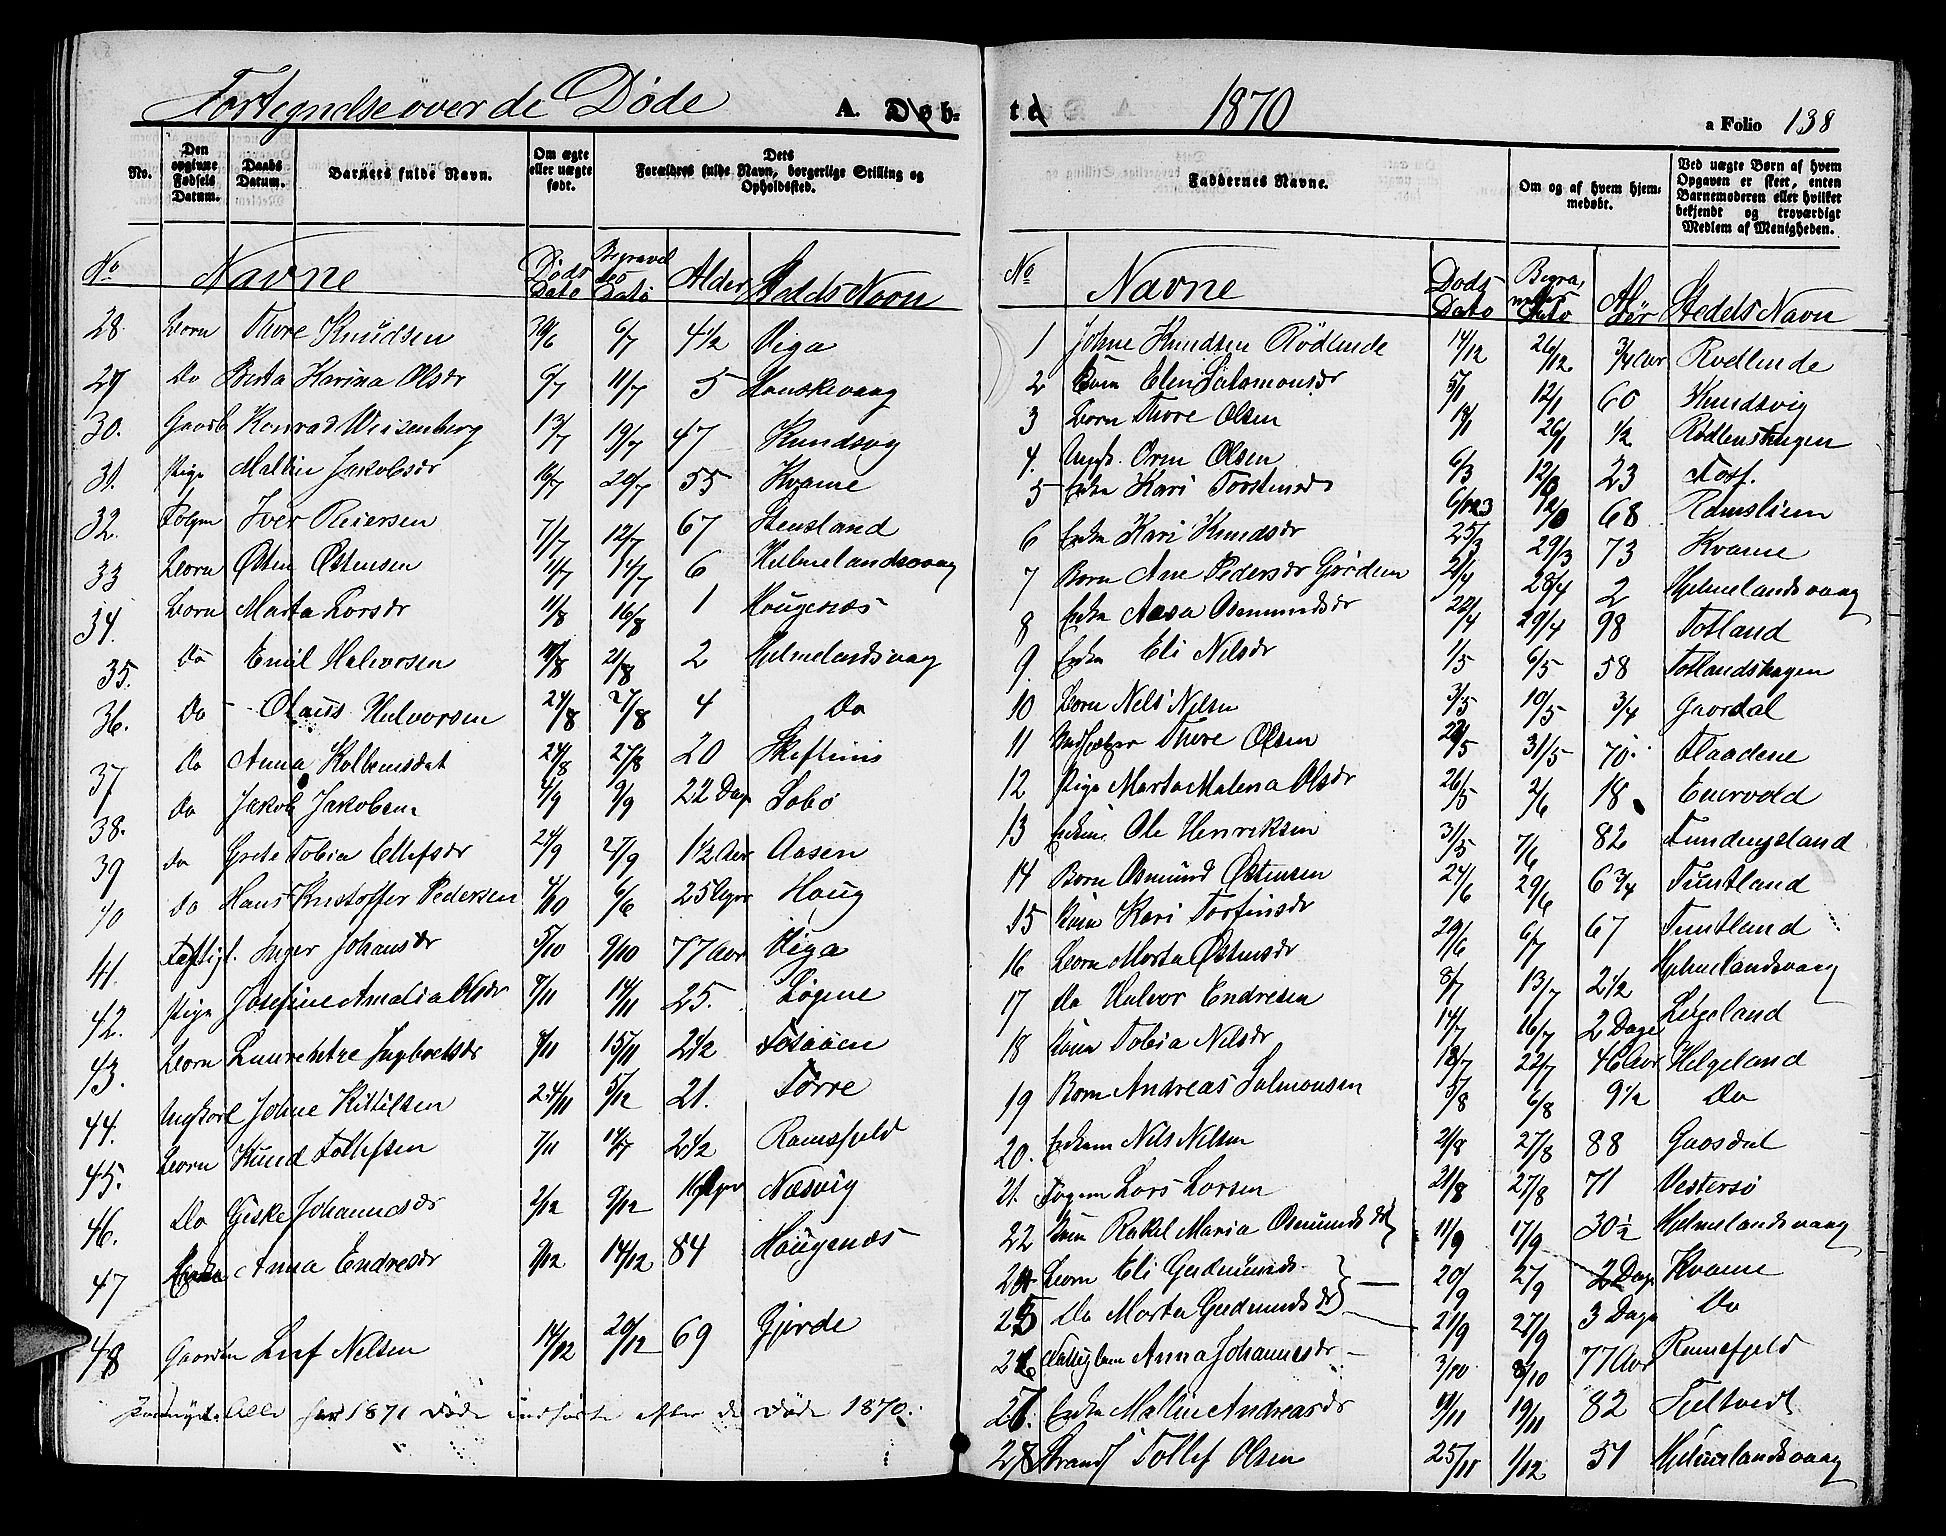 Fortegnelse over de Døde A. Døb=
No.
Den opgivne Fødsels Datum.
Daabs Datum.
Barnets fulde Navn.
Om ægte eller uægte født.
Dets Forældres fulde Navn, borgerlige Stilling og Opholdssted.
No Navne Døds Dato Begravel ses Dato Alder Steds Navn
28. Barn Thore Knudsen 30/6 6/7 4 1/2 Viga
29 Do Berta Karina Olsdr 6/7 11/7 5 Hanskevaag
30. Gaardb Konrad Weisenberg 13/7 19/7 47 Knudsvig
31. Pige Mallin Jakobsdr 16/7 20/7 55 Kvame
32. Iver Reiersen 7/7 12/7 67 Stensland
33 Barn Østen Østensen 11/7 14/7 6 Helmelandsvaag
34. Barn Marta Larsdr 11/8 16/8 1 Hougenæs
35. Do Emil Halvorsen 21/8 2 Helmelandsvaag
36. Do Olaus Halvorsen 24/8 27/8 4 Do
37 Do Anna Kolbensdat 24/8 27/8 20
38. Do Jakob Jakobsen 4/9 9/9 22 Dag Sabø
39 do Grete Tobia Ellefsdr 24/9 27/9 1 1/2 Aar Aasen
40 do Hans Kristoffer Pedersen 4/10 6/6 25 Uger Houg
41. Inger Johansdr 5/10 9/10 77 Aar Viga
42. Pige Josefine Amalia Olsdr 7/11 14/11 25. Løgene
43. Barn Laurentze Ingbretsdr 8/11 15/11 2 1/2
44. Ungkarl Johne Kittilsen 24/11 5/12 21. Tørre
45. Barn Knud Tollefsen 7/11 2 1/2 Ramsfjeld
46. Do Giske Johannesdr 2/12 9/12 16 Uger Næsvig
47 Enke Anna Endresdr 9/12 14/12 84 Hougenæs
48 Gaardm Leif Nelsen 14/12 20/12 69 Gjerde
Alle 1871 Døde indførte efter de Døde 1870.
te 1870 a Folio 138
Faddernes Navne.
Om og af hvem hjemmedøbt.
Ved uægte Børn af hvem Opgaven er skeet, enten Barnemoderen eller hvilket bekjendt og troværdigt Medlem af Menigheden.
No Navne Døds Dato Begra velses Dato Al der Stedets Navn
1 Johne Knudsen Rødlende 14/12 26/12 3/4 Aar Rødlende
2 Kone Elen Salamonsdr 5/1 12/1 60 Knudsvig
3 Barn Thore Olsen 18/1 26/1 1/2 Rødlenshagen
4. Ungk. Orm Olsen 6/3 12/3 23
5 Enke Kari Torstensd 68 Ramslien
6 Enke Kari Knudsdr 25/3 29/3 73 Kvame
7 Barn Ane Pedersdr Gjørdem 21/4 28/4 2 Hjelmelandsvaag
8 Enke Aasa Osmundsdr 22/4 29/4 98 Totland
9. Enke Eli Nilsdr 1/5 6/5 58 Totlandshagen
10 Barn Nels Nilsen 3/5 10/5 3/4 Gaardal
11 Thore Olsen 31/5 70. Flaadene
12 Pige Marta Malena Olsdr 26/5 2/6 18
13 Ole Henriksen 31/5 7/6 82 Fundingsland
14 Barn Osmund Østensen 24/6 29/6 6 3/4 Tuntland
15 Kone Kari Torfinsdr 29/6 6/7 67 Tuntland
16 Barn Marta Østensdr 8/7 13/7 2 1/2 Hjelmelandsvaag
17 Do Halvor Endresen 14/7 16/7 2 Dage
18 Kone Tobia Nilsdr 18/7 22/7 46 Aar Helgeland
19 Barn Andreas Salmonsen 5/8 6/8 9 1/2 Do
20. Enkem Nils Nilsen 21/8 27/8 88 Gaasdal
21. Lars Larsen 21/8 27/8 71 Vestersø
22 Kone Rakel Maria Osmundsdr 11/9 17/9 30 1/2 Hjelmelandsvaag
24 Barn Eli Gudmunds 20/9 27/9 2 Dage Kvame
25 Do Marta Gudmundsdr 21/9 27/9 3 Dage Do
26 Fattiglem Anna Johannesdr 3/10 8/10 77 Aar Ramsfjeld
27. Enke Mallin Andreasdr 11/11 19/11 82 Tjeltvedt
28 Strands Tollef Olsen 25/11 1/12 51 Hjelmelandsvaag